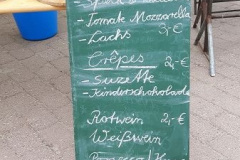 - Tomate Mozzarella
- Lachs 2,-€
Crêpes
- Suzette 2,-€
- Kinderschokolade
Rotwein 2,-€
Weißwein